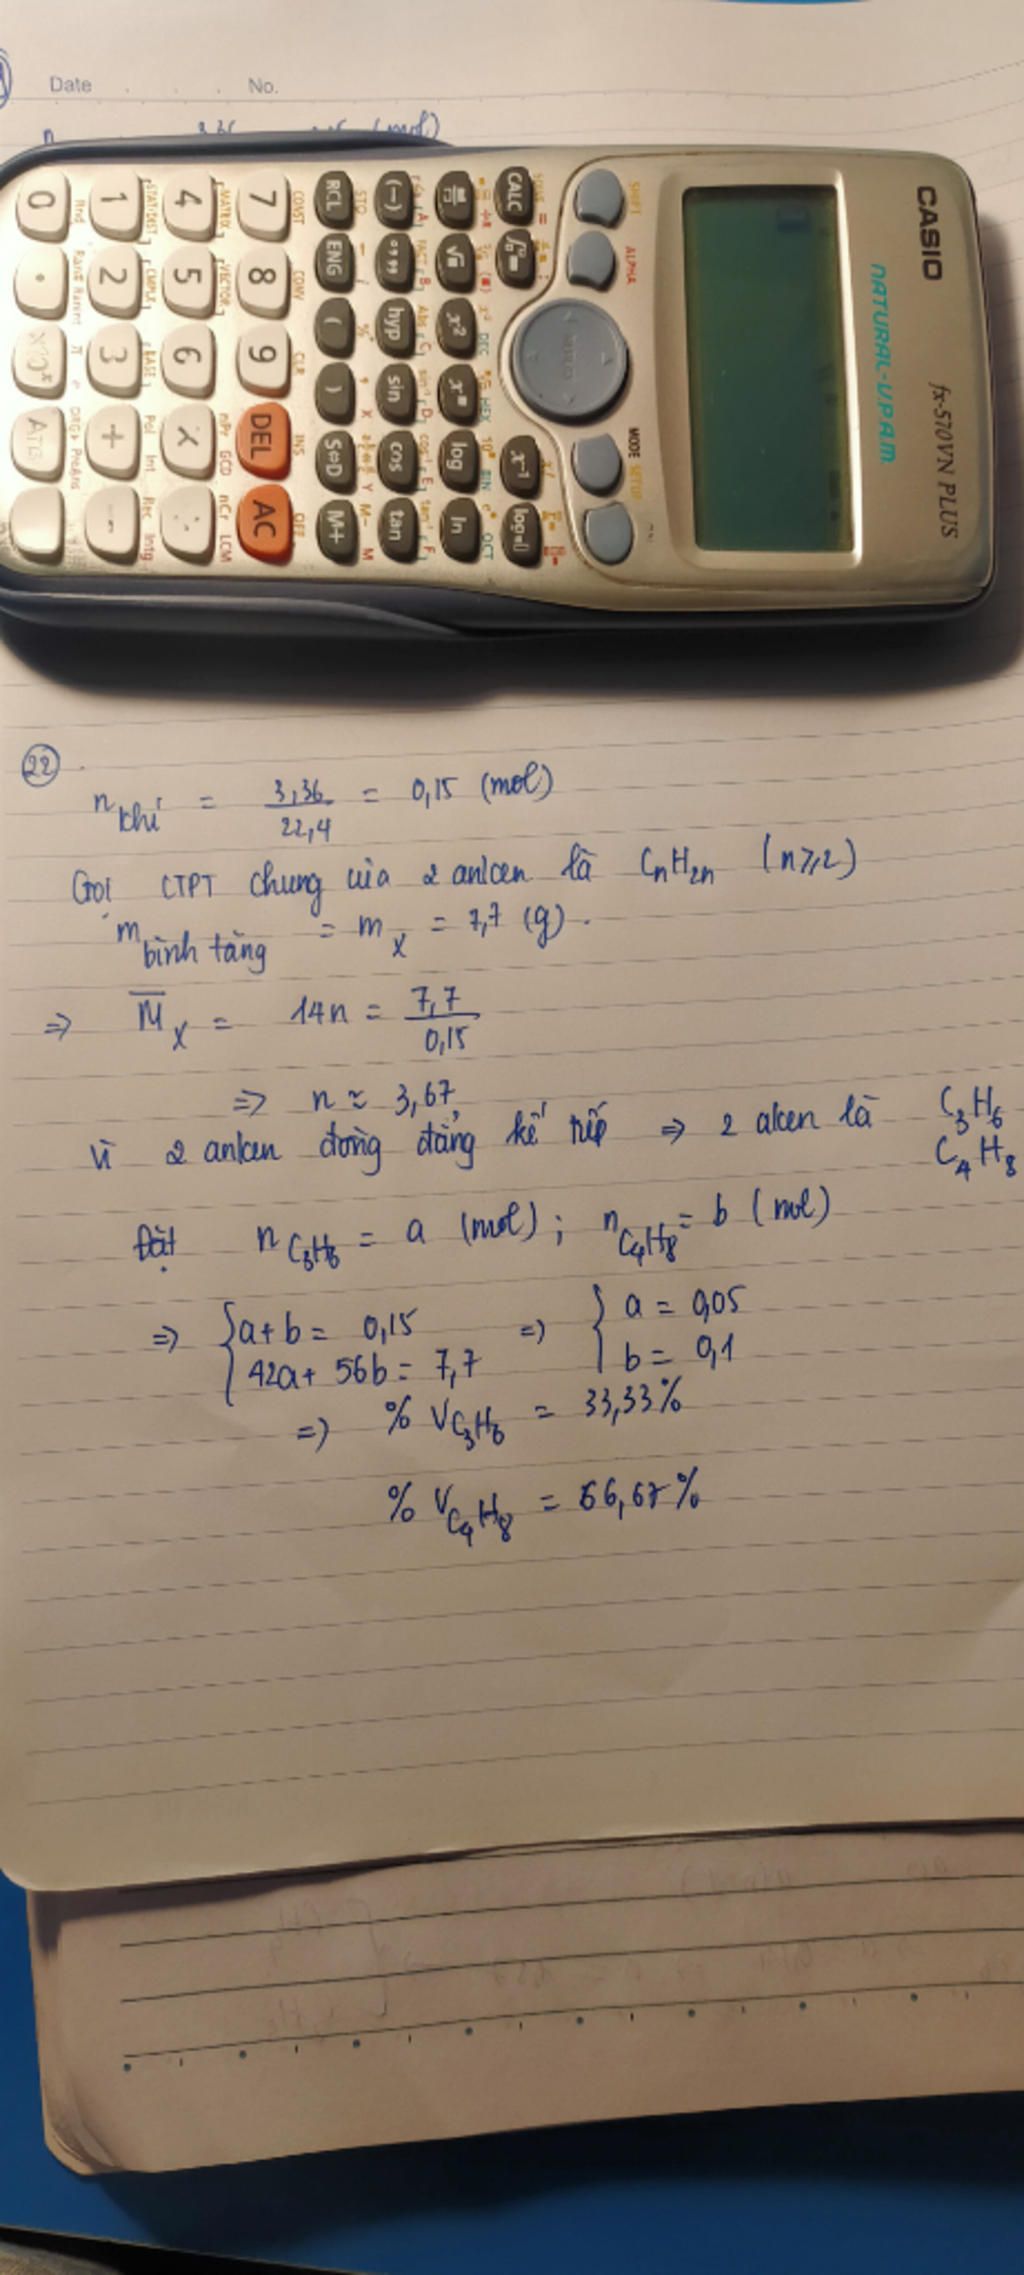 Date No.
3,36 (mol)
CASIO
fx-570VN PLUS
NATURAL-V.P.A.M.
SHIFT ALPHA MODE SETUP
CALC x⁻¹
√ x² log ln
(-) hyp sin cos tan
RCL ENG ( ) S⇔D M+
7 8 9 DEL AC
4 5 6 × ÷
1 2 3 + -
0 . ×10ˣ Ans
22
n khí = 3,36/22,4 = 0,15 (mol)
Gọi CTPT chung của 2 anken là CnH2n (n≥2)
m bình tăng = mX = 7,7 (g).
=> M̅X = 14n = 7,7/0,15
=> n ≈ 3,67
Vì 2 anken đồng đẳng kế tiếp => 2 aken là C3H6
C4H8
Đặt nC3H6 = a (mol); nC4H8 = b (mol)
=> { a+b = 0,15 => { a = 0,05
42a + 56b = 7,7 b = 0,1
=> % VC3H6 = 33,33%
% VC4H8 = 66,67%